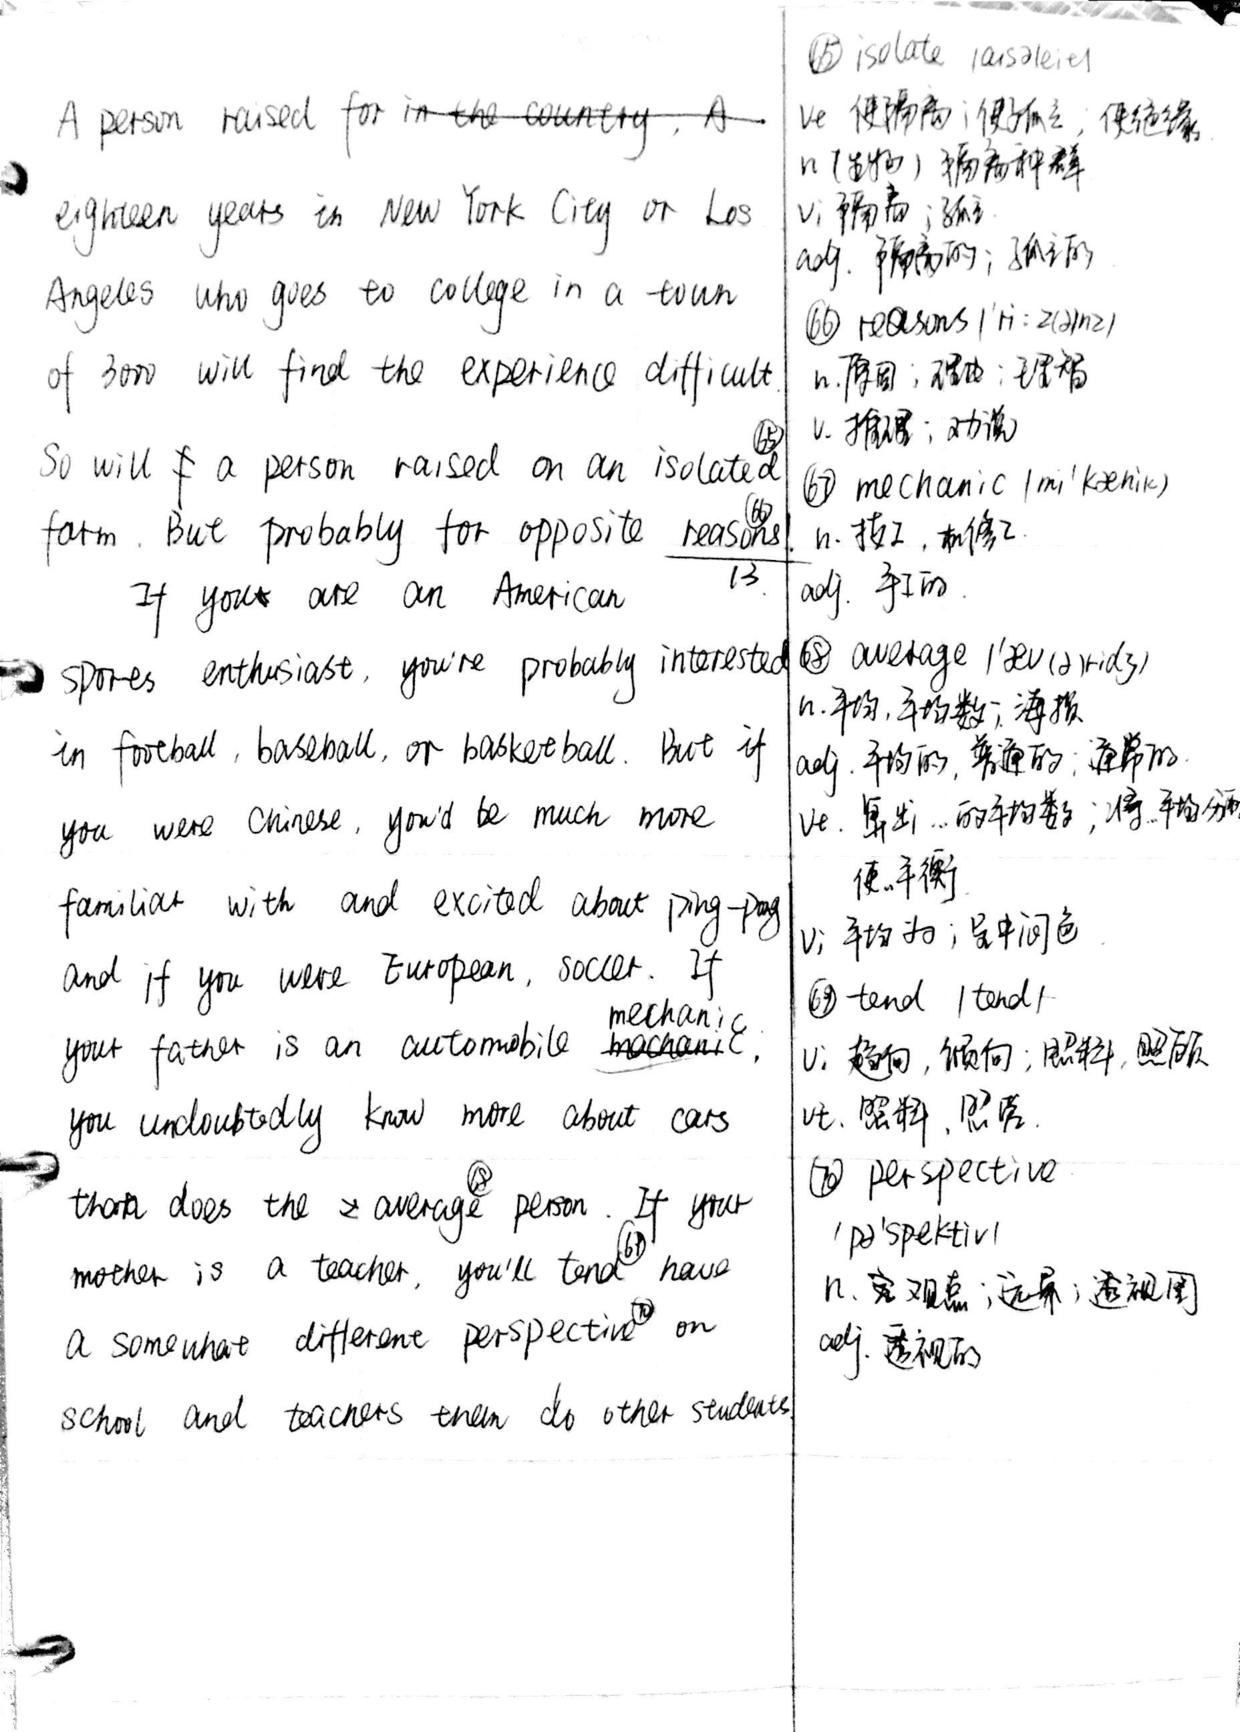 A person raised for in the country. A
eighteen years in New York City or Los
Angeles who goes to college in a town
of 3000 will find the experience difficult.
So will a person raised on an isolated ⑥⑤
farm. But probably for opposite reasons! ⑥⑥
13.
If you are an American
sports enthusiast, you're probably interested
in football, baseball, or basketball. But if
you were Chinese, you'd be much more
familiar with and excited about ping-pong
and if you were European, soccer. If
mechanic
your father is an automobile machanic,
you undoubtedly know more about cars
than does the average ⑥⑧ person. If your
mother is a teacher, you'll tend ⑥⑨ have
a somewhat different perspective ⑦⓪ on
school and teachers them do other students.
⑥⑤ isolate /aisəleit/
vt 使隔离；使孤立；使绝缘
n (生物) 隔离种群
vi 隔离；孤立.
adj. 隔离的；孤立的
⑥⑥ reasons /'ri:z(ə)nz/
n. 原因；理由；理智
v. 推理；劝说
⑥⑦ mechanic /mi'kænik/
n. 技工，机修工.
adj. 手工的.
⑥⑧ average /'æv(ə)ridʒ/
n. 平均，平均数；海损
adj. 平均的，普通的；通常的.
vt. 算出…的平均数；将…平均分配
使…平衡
vi 平均为；呈中间色.
⑥⑨ tend /tend/
vi 趋向，倾向；照料，照顾
vt. 照料，照管.
⑦⓪ perspective
/pə'spektiv/
n. 观点；远景；透视图
adj. 透视的